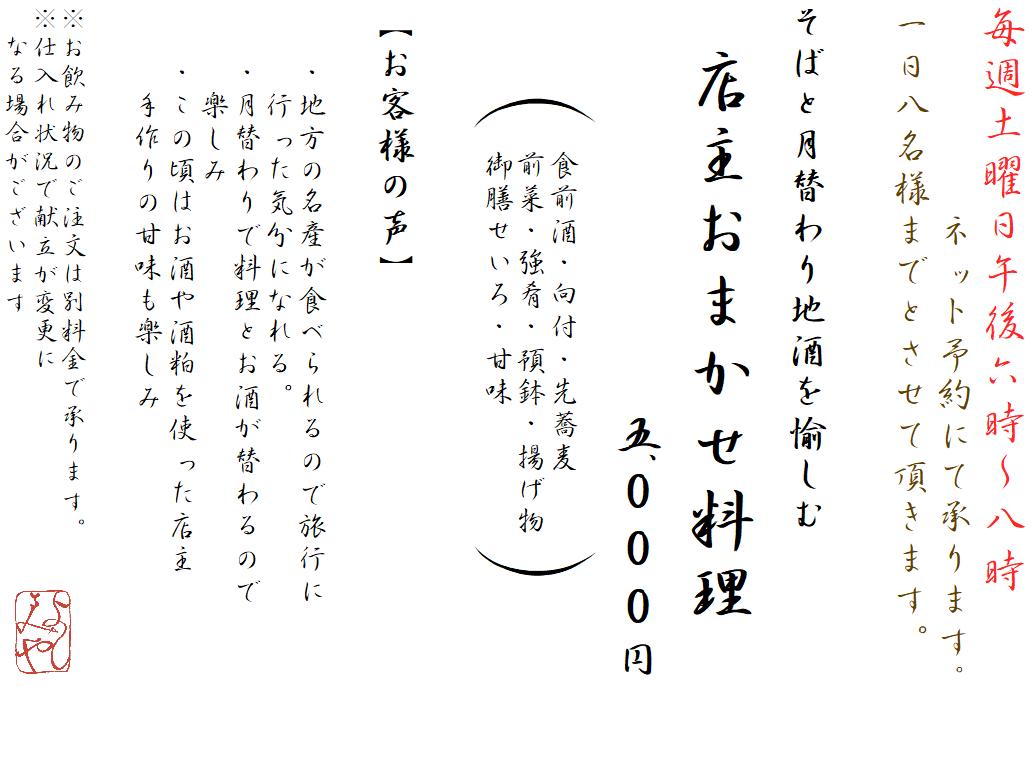 毎週土曜日午後六時～八時
ネット予約にて承ります。
一日八名様までとさせて頂きます。
そばと月替わり地酒を愉しむ
店主おまかせ料理
五、０００円
（
食前酒・向付・先蕎麦
前菜・強肴・預鉢・揚げ物
御膳せいろ・甘味
）
【お客様の声】
・地方の名産が食べられるので旅行に
行った気分になれる。
・月替わりで料理とお酒が替わるので
楽しみ
・この頃はお酒や酒粕を使った店主
手作りの甘味も楽しみ
※お飲み物のご注文は別料金で承ります。
※仕入れ状況で献立が変更に
なる場合がございます